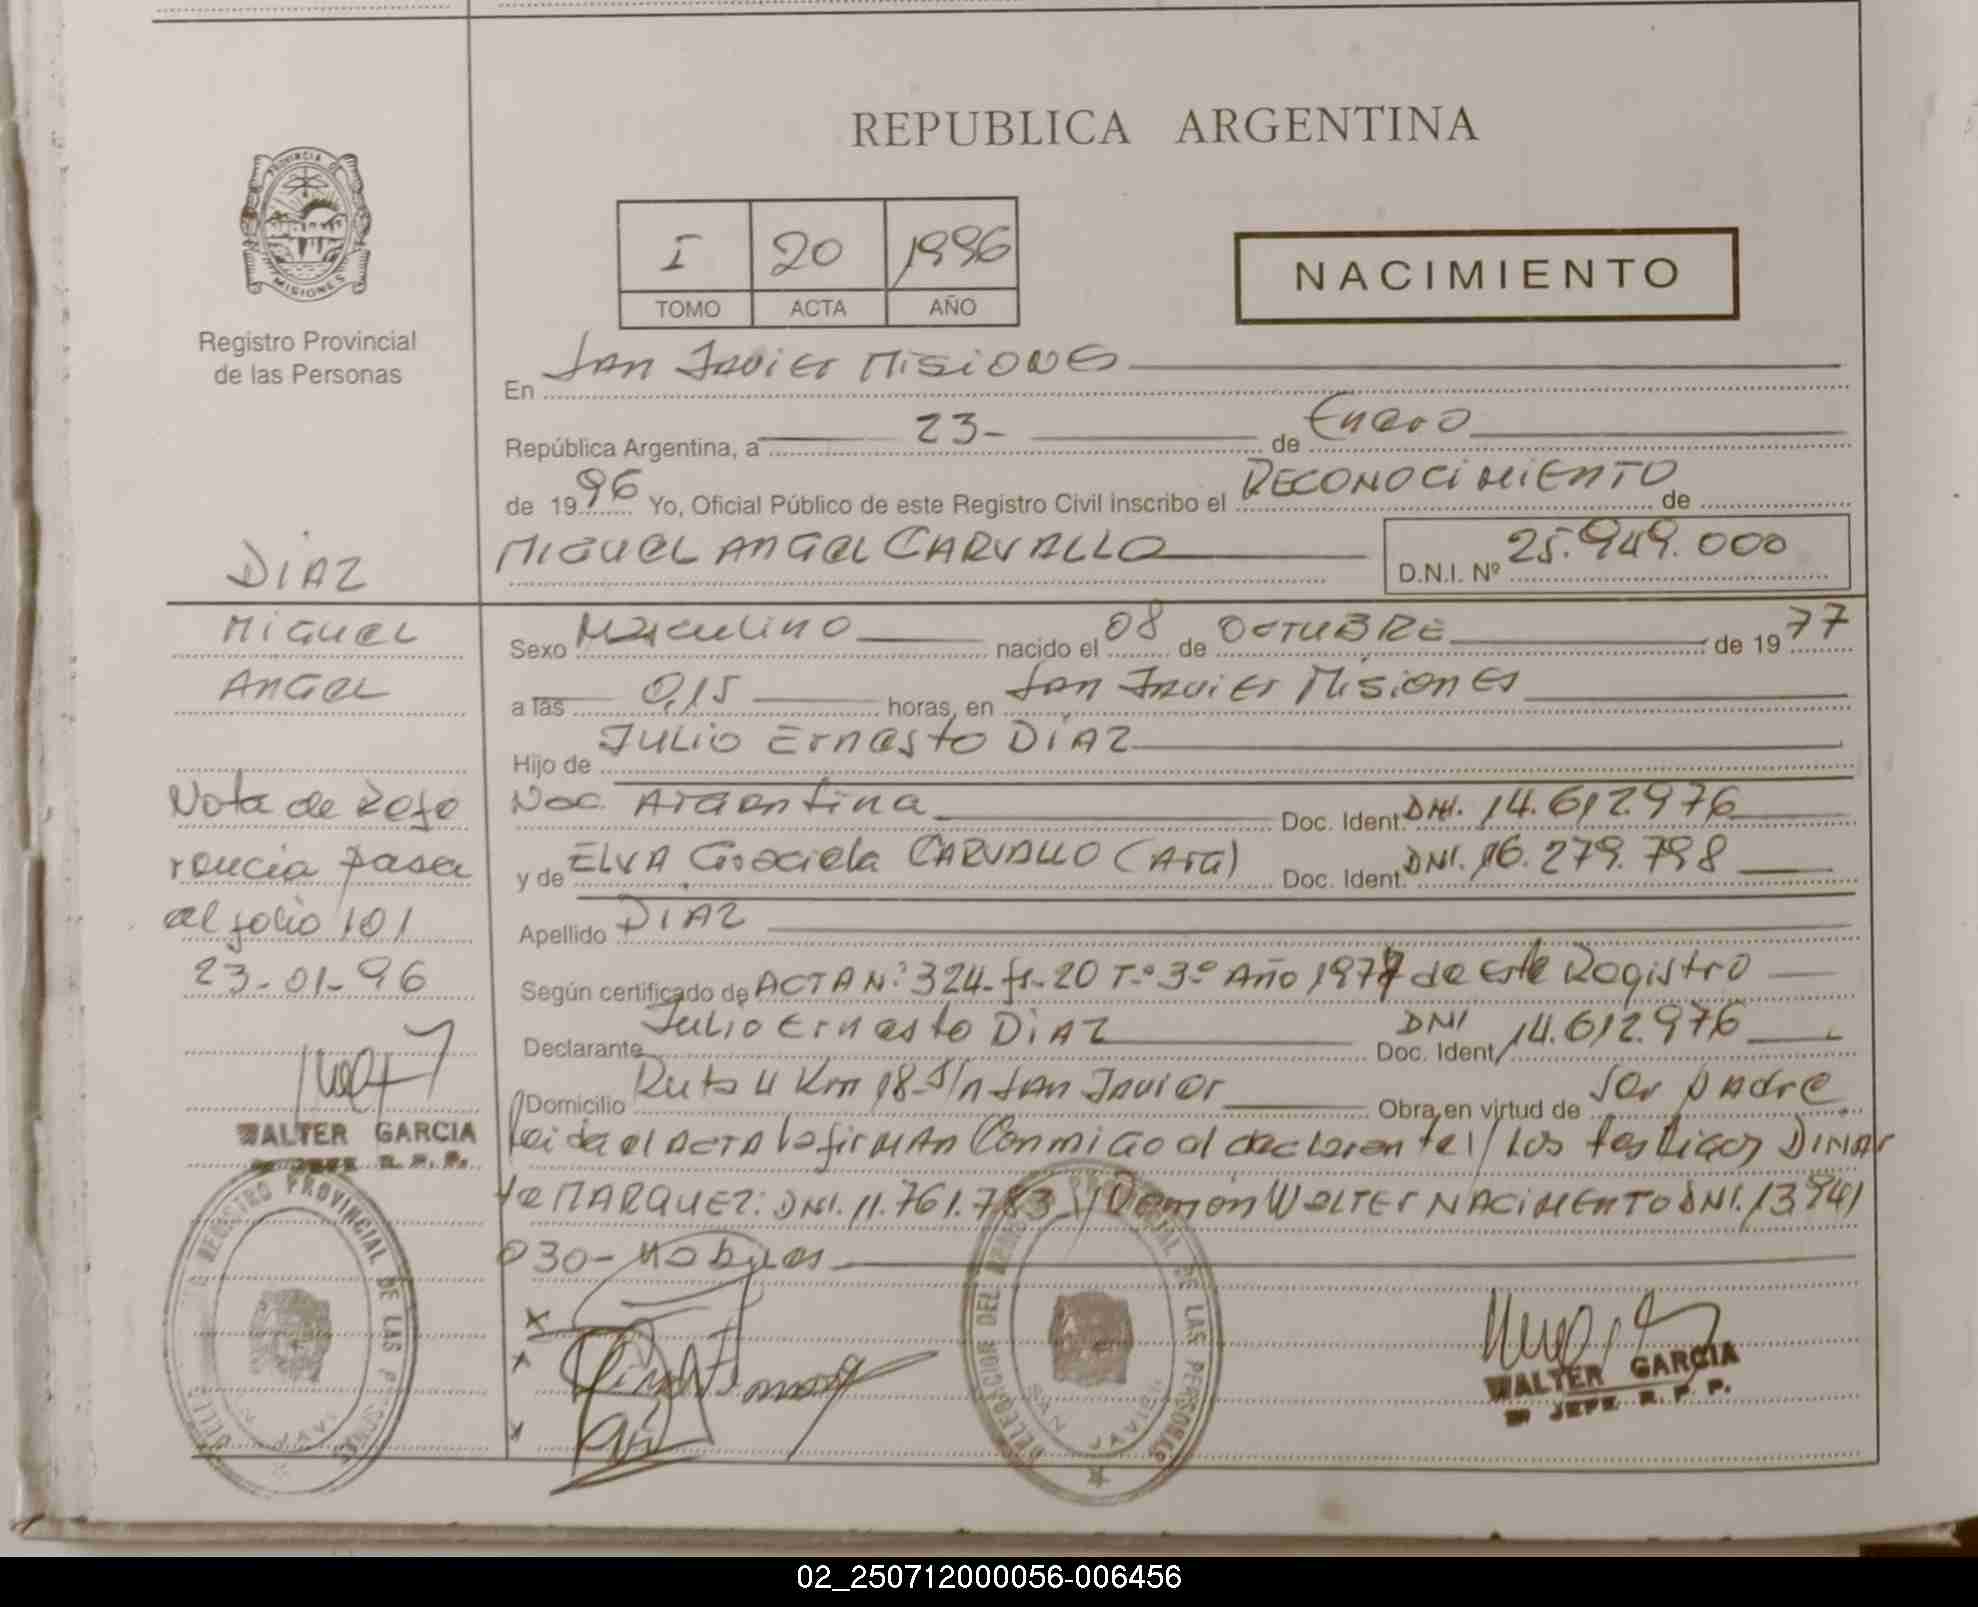 REPUBLICA ARGENTINA
PROVINCIA DE
MISIONES
Registro Provincial
de las Personas
I 20 1996
TOMO ACTA AÑO
NACIMIENTO
En San Javier Misiones
República Argentina, a 23- de Enero
de 1996 Yo, Oficial Público de este Registro Civil inscribo el RECONOCIMIENTO de
MIGUEL ANGEL CARVALLO D.N.I. Nº 25.949.000
DIAZ
MIGUEL
ANGEL
Sexo Masculino nacido el 08 de OCTUBRE de 1977
a las 0,15 horas, en San Javier Misiones
Hijo de JULIO Ernesto DIAZ
Nac. Argentina Doc. Ident. DNI. 14.612.976
y de ELVA Graciela CARVALLO (Arg) Doc. Ident. DNI. 16.279.798
Apellido DIAZ
Según certificado de ACTA N: 324- fº-20 T-º 3-º Año 1977 de este Registro
Declarante Julio Ernesto DIAZ DNI Doc. Ident 14.612.976
Domicilio Ruta 4 Km 18-S/n San Javier Obra en virtud de Ser padre
Leida el ACTA la firman Conmigo el declarante // Los testigos
MARQUEZ: DNI. 11.761.783 // Ramon WALTER NACIMENTO DNI. 13.941
030-
Nota de Refe
rencia pasa
al folio 101
23-01-96
WALTER GARCIA
JEFE R. P. P.
REGISTRO PROVINCIAL DE LAS
DELEGACION DEL PROVINCIAL DE LAS PERSONAS
SAN JAVIER
WALTER GARCIA
JEFE R. P. P.
02_250712000056-006456